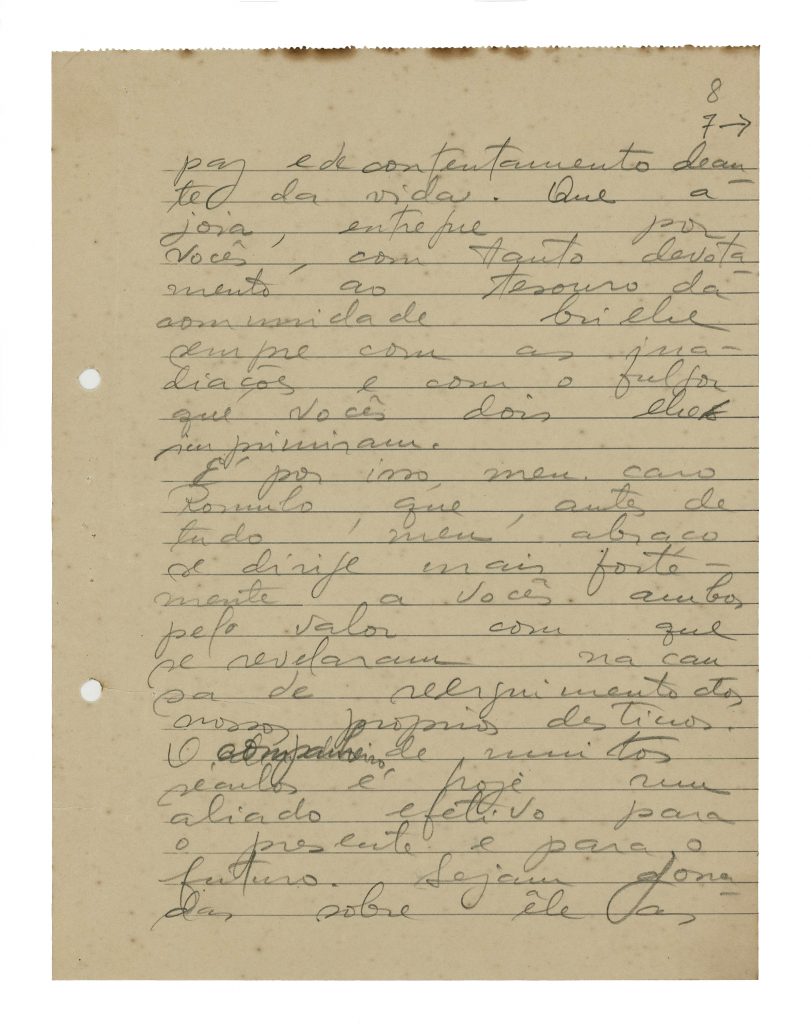 8
7→
paz e de contentamento dean-
te da vida. Que a
joia, entregue por
vocês, com tanto devota-
mento ao tesouro da
comunidade brilhe
sempre com as irra-
diações e com o fulgor
que vocês dois lhe
imprimiram.
É por isso, meu caro
Romulo que, antes de
tudo, meu abraço
se dirige mais forte-
mente a vocês ambos
pelo valor com que
se revelaram na cau
sa de reerguimento dos
nossos proprios destinos.
O companheiro de muitos
seculos é hoje um
aliado efetivo para
o presente e para o
futuro. Sejam
das sobre êle as